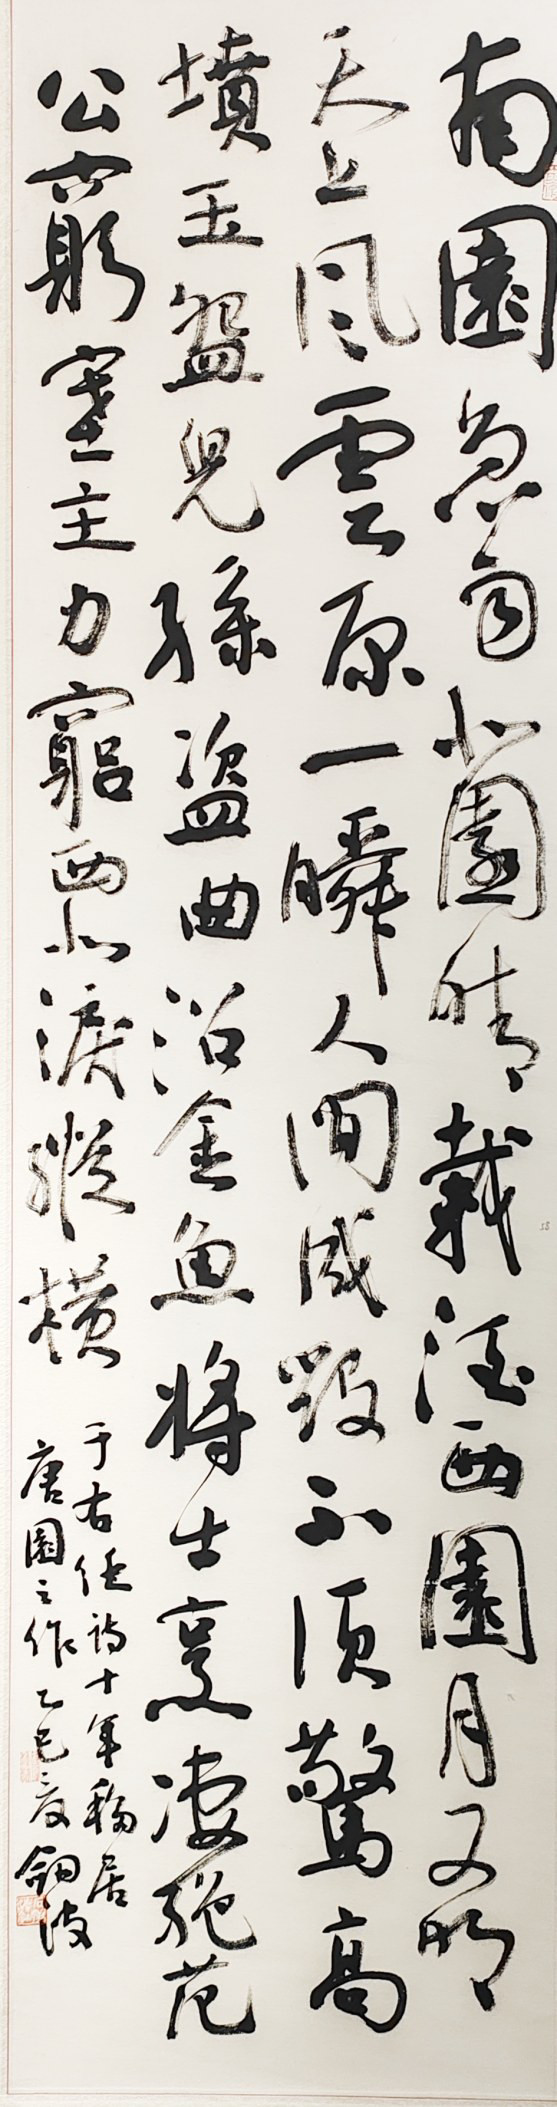 南園魚勻北園晴載酒西園月又明
天上風雲原一瞬人間成毀不須驚高
墳玉盌兒孫盜曲沼金魚將士烹淒絕范
公窮塞主力窮西北淚縱橫
于右任詩十年移居
唐園之作乙巳夏劍波